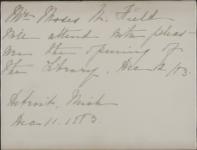 Mr. Moses W. Field
Will attend with pleas-
ure the opening of
the Library, Dec 12/83.
Detroit, Mich
Dec 11. 1883.